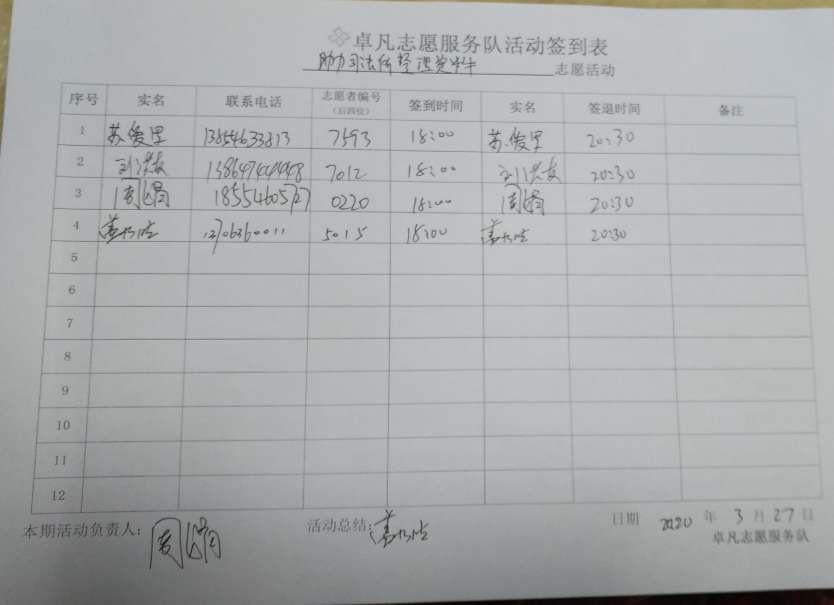 卓凡志愿服务队活动签到表
助力司法所整理资料 志愿活动
序号 实名 联系电话 志愿者编号（后四位） 签到时间 实名 签退时间 备注
1 苏俊里 13854633813 7593 18:00 苏俊里 20:30
2 刘洪友 7012 18:00 刘洪友 20:30
3 周娟 18554605727 0220 18:00 周娟 20:30
4 5015 18:00 20:30
5
6
7
8
9
10
11
12
本期活动负责人：周娟 活动总结： 日期 2020 年 3 月 27 日
卓凡志愿服务队